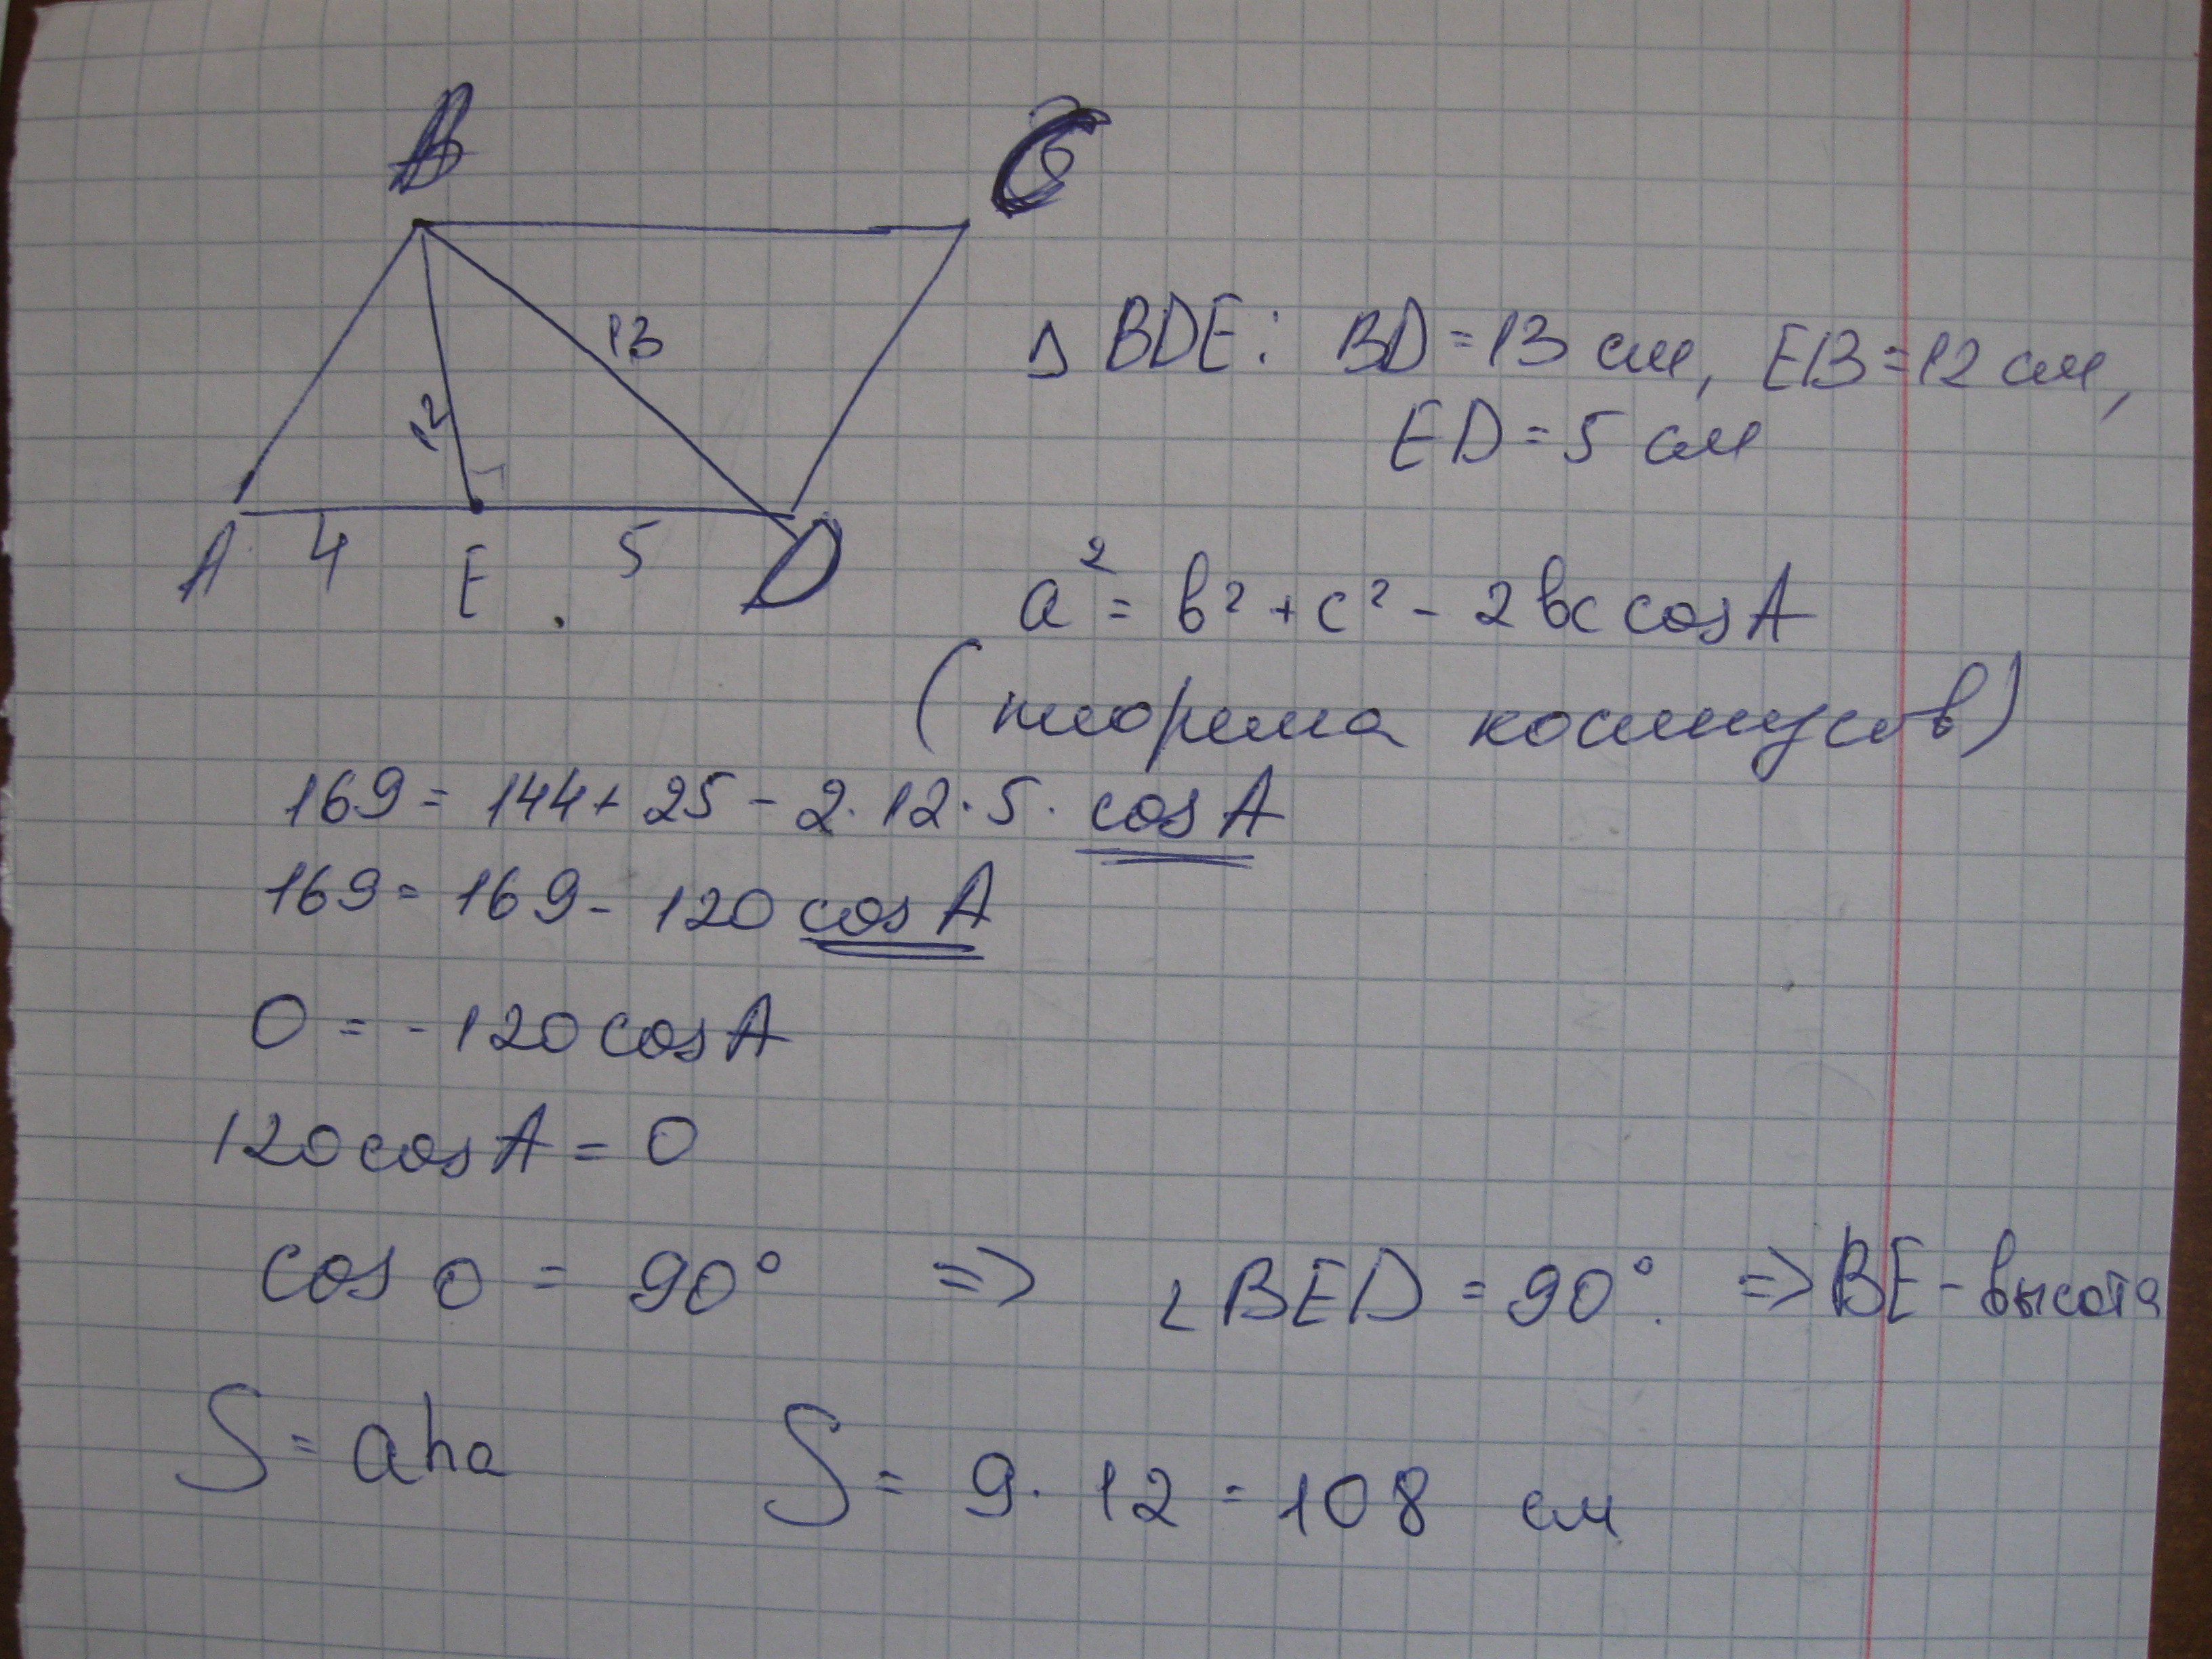 B C
13
12
A 4 E 5 D
Δ BDE: BD = 13 см, EB = 12 см,
ED = 5 см
a² = b² + c² - 2bc cos A
(теорема косинусов)
169 = 144 + 25 - 2·12·5·cos A
169 = 169 - 120 cos A
0 = -120 cos A
120 cos A = 0
cos 0 = 90° => ∠BED = 90°. => BE - высота
S = aha S = 9·12 = 108 см